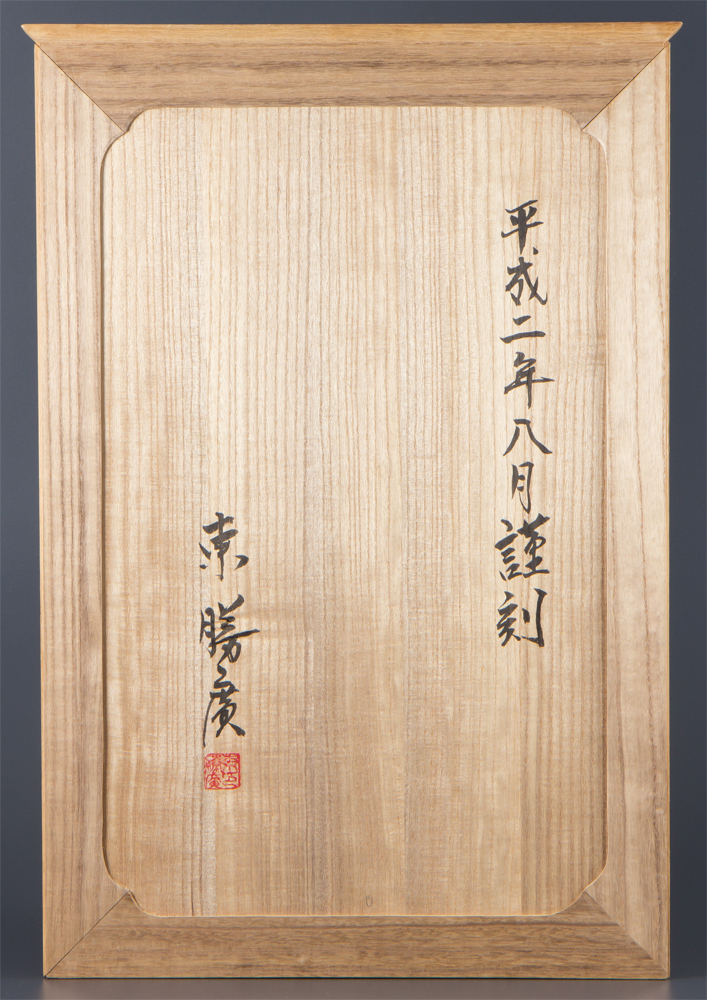 平成二年八月謹刻
東勝廣